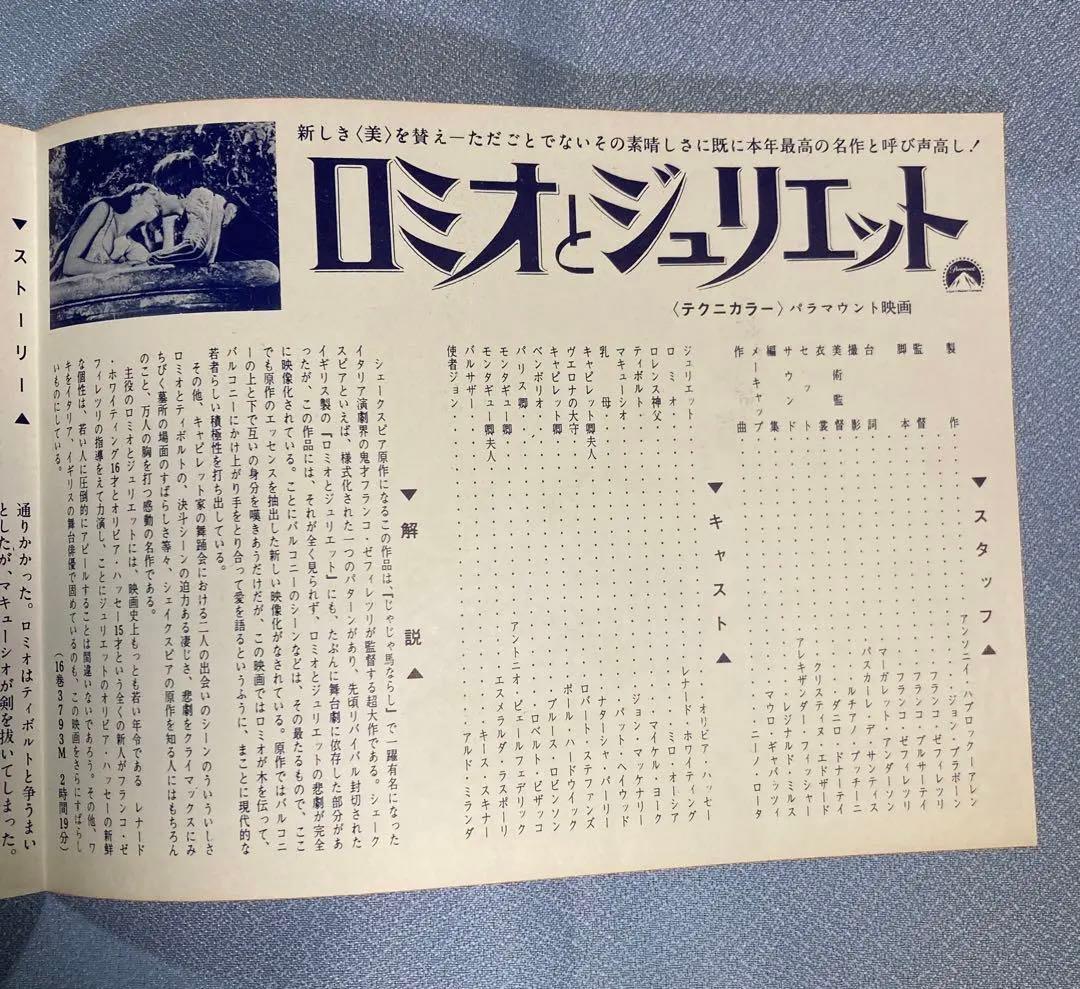 新しき〈美〉を賛え―ただごとでないその素晴しさに既に本年最高の名作と呼び声高し!
ロミオとジュリエット
Paramount
〈テクニカラー〉パラマウント映画
▼スタッフ▲
製作・・・アンソニイ・ハブロック=アレン
・ジョン・ブラボーン
監督・・・フランコ・ゼフィレツリ
脚本・・・フランコ・ブルサーティ
フランコ・ゼフィレツリ
台詞・・・マーガレット・アンダソン
撮影・・・パスカーレ・デ・サンティス
美術監督・・・ルチアノ・プッチーニ
衣裳・・・ダニロ・ドナーティ
セット・・・クリスティーヌ・エドザード
サウンド・・・アレキザンダー・フィッシャー
編集・・・レジナルド・ミルス
メーキャップ・・・マウロ・ギャバッツィ
作曲・・・ニーノ・ロータ
▼キャスト▲
ジュリエット・・・オリビア・ハッセー
ロミオ・・・レナード・ホワイティング
ロレンス神父・・・ミロ・オーシア
ティボルト・・・マイケル・ヨーク
マキューシオ・・・ジョン・マッケナリー
乳母・・・パット・ヘイウッド
キャピレット卿夫人・・・ナターシャ・パーリー
ヴエロナの大守・・・ロバート・ステファンズ
キャピレット卿・・・ポール・ハードウイック
ベンボリオ・・・ブルース・ロビンソン
パリス卿・・・ロベルト・ビザッコ
モンタギュー卿・・・アントニオ・ピェールフェデリック
モンタギュー卿夫人・・・エスメラルダ・ラスポーリ
バルサザー・・・キース・スキナー
使者ジョン・・・アルド・ミランダ
▼解説▲
シェークスピア原作になるこの作品は、『じゃじゃ馬ならし』で一躍有名になった
イタリア演劇界の鬼才フランコ・ゼフィレツリが監督する超大作である。シェーク
スピアといえば、様式化された一つのパターンがあり、先頃リバイバル封切された
イギリス製の『ロミオとジュリエット』にも、たぶんに舞台劇に依存した部分があ
ったが、この作品には、それが全く見られず、ロミオとジュリエットの悲劇が完全
に映像化されている。ことにバルコニーのシーンなどは、その最たるもので、ここ
でも原作のエッセンスを抽出した新しい映像化がなされている。原作ではバルコニ
ーの上と下で互いの身分を嘆きあうだけだが、この映画ではロミオが木を伝って、
バルコニーにかけ上がり手をとり合って愛を語るというふうに、まことに現代的な
若者らしい積極性を打ち出している。
その他、キャピレット家の舞踊会における二人の出会いのシーンのういういしさ
ロミオとティボルトの、決斗シーンの迫力ある凄じさ、悲劇をクライマックスにみ
ちびく墓所の場面のすばらしさ等々、シェイクスピアの原作を知る人にはもちろん
のこと、万人の胸を打つ感動の名作である。
主役のロミオとジュリエットには、映画史上もっとも若い年令である レナード
・ホワイティング16才とオリビア・ハッセー15才という全くの新人がフランコ・ゼ
フィレツリの指導をえて力演し、ことにジュリエットのオリビア・ハッセーの新鮮
な個性は、若い人に圧倒的にアピールすることは間違いないであろう。その他、ワ
キをイタリア、イギリスの舞台俳優で固めているのも、この映画をさらにすばらし
いものにしている。
(16巻3793M 2時間19分)
▼ストーリー▲
通りかかった。ロミオはティボルトと争うまい
としたが、マキューシオが剣を抜いてしまった。